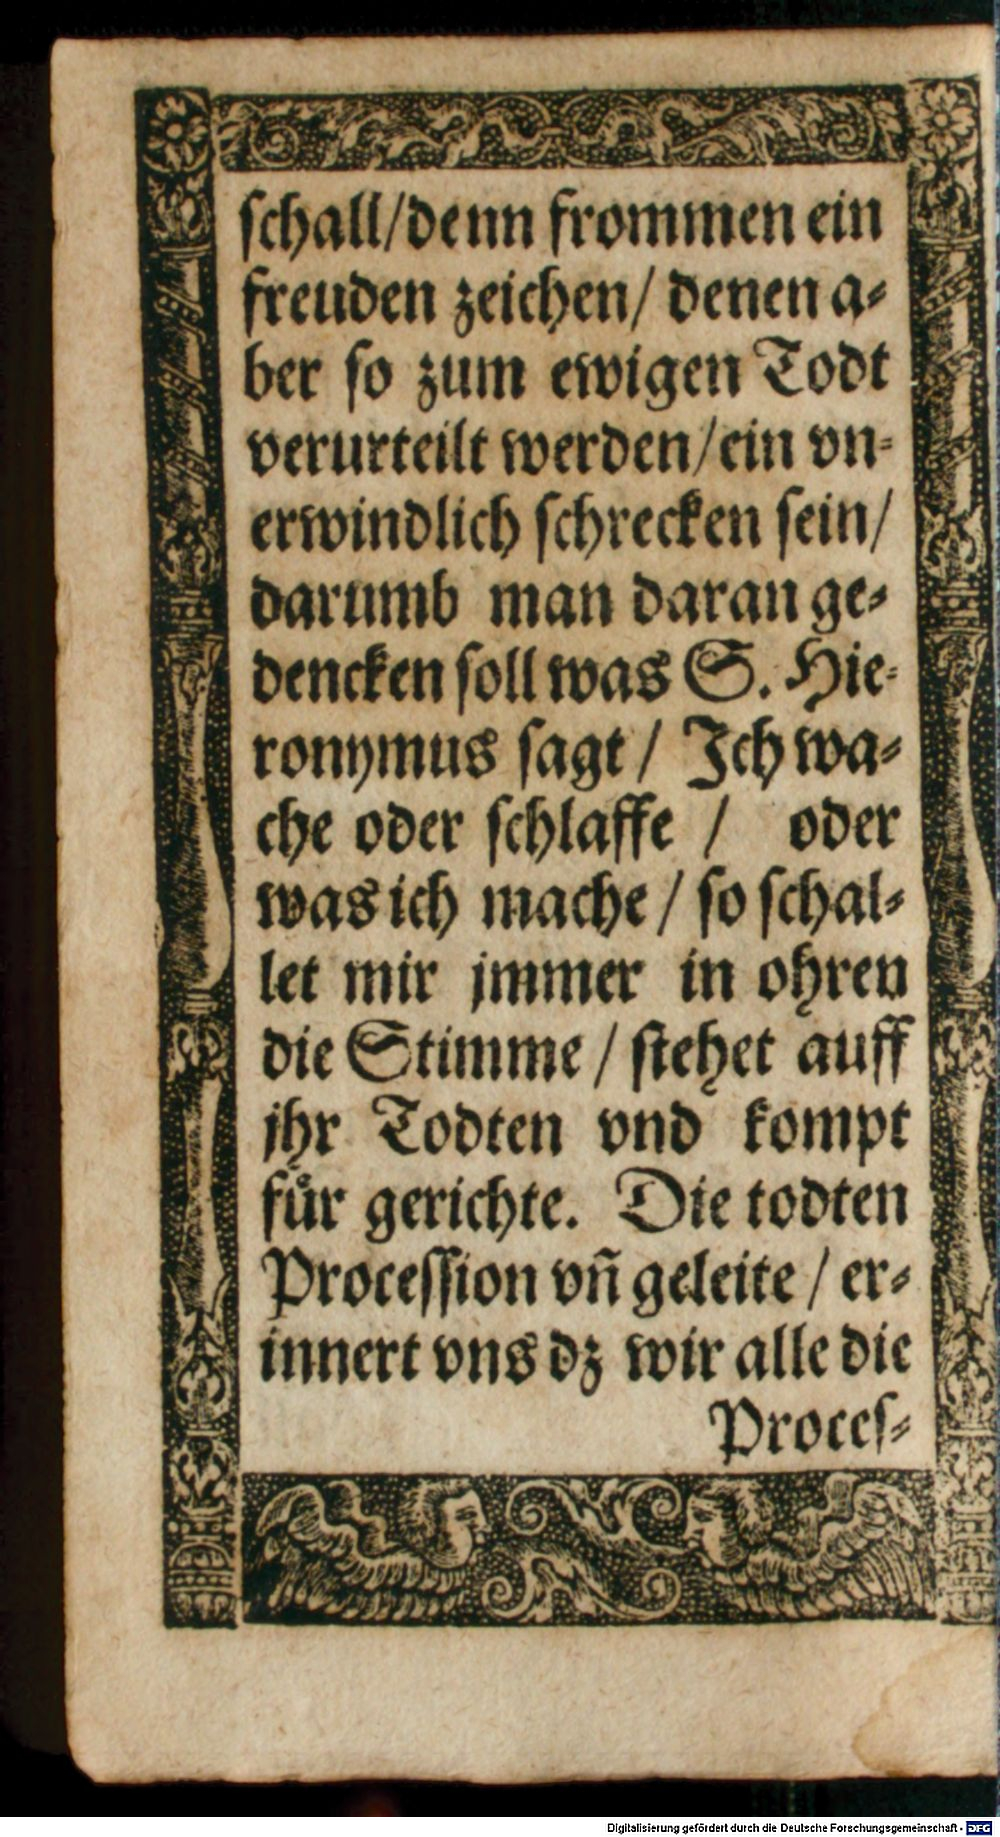 ſchall/denn frommen ein
freuden zeichen/ denen a⸗
ber ſo zum ewigen Todt
verurteilt werden/ein vn⸗
erwindlich ſchrecken ſein/
darumb man daran ge⸗
dencken ſoll was S. Hie⸗
ronymus ſagt / Ich wa⸗
che oder ſchlaffe / oder
was ich mache / ſo ſchal⸗
let mir jmmer in ohren
die Stimme / ſtehet auff
jhr Todten vnd kompt
fuͤr gerichte. Die todten
Proceſſion vñ geleite / er⸗
innert vns dz wir alle die
Proceſ⸗
Digitalisierung gefördert durch die Deutsche Forschungsgemeinschaft - DFG